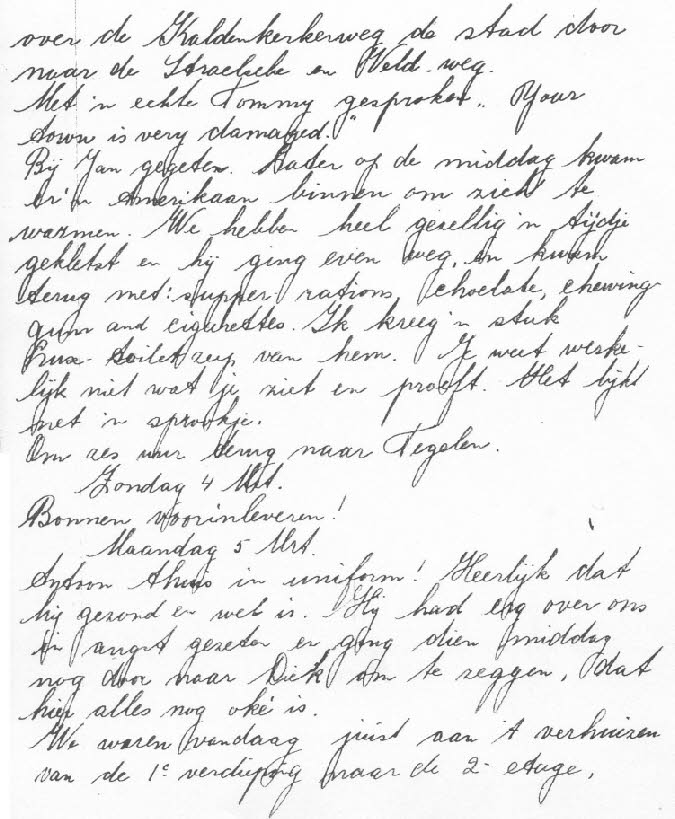 over de Kaldenkerkerweg de stad door
naar de Straelsche en Veld-weg.
Met 'n echte Tommy gesproken „ Your
town is very damaged."
Bij Jan gegeten. Later op de middag kwam
er 'n Amerikaan binnen om zich te
warmen. We hebben heel gezellig 'n tijdje
gekletst en hij ging even weg, en kwam
terug met: supper rations, choclate, chewing
gum and cigarettes. Ik kreeg 'n stuk
toiletzeep van hem. Je weet werke-
lijk niet wat je ziet en proeft. Het lijkt
net 'n sprookje.
Om zes uur terug naar Tegelen.
Zondag 4 Mrt.
Bonnen voorinleveren!
Maandag 5 Mrt.
Antoon thuis in uniform! Heerlijk dat
hij gezond en wel is. Hij had erg over ons
in angst gezeten en ging dien middag
nog door naar Dick om te zeggen, dat
hier alles nog oké is.
We waren vandaag juist aan 't verhuizen
van de 1e verdieping naar de 2e etage,